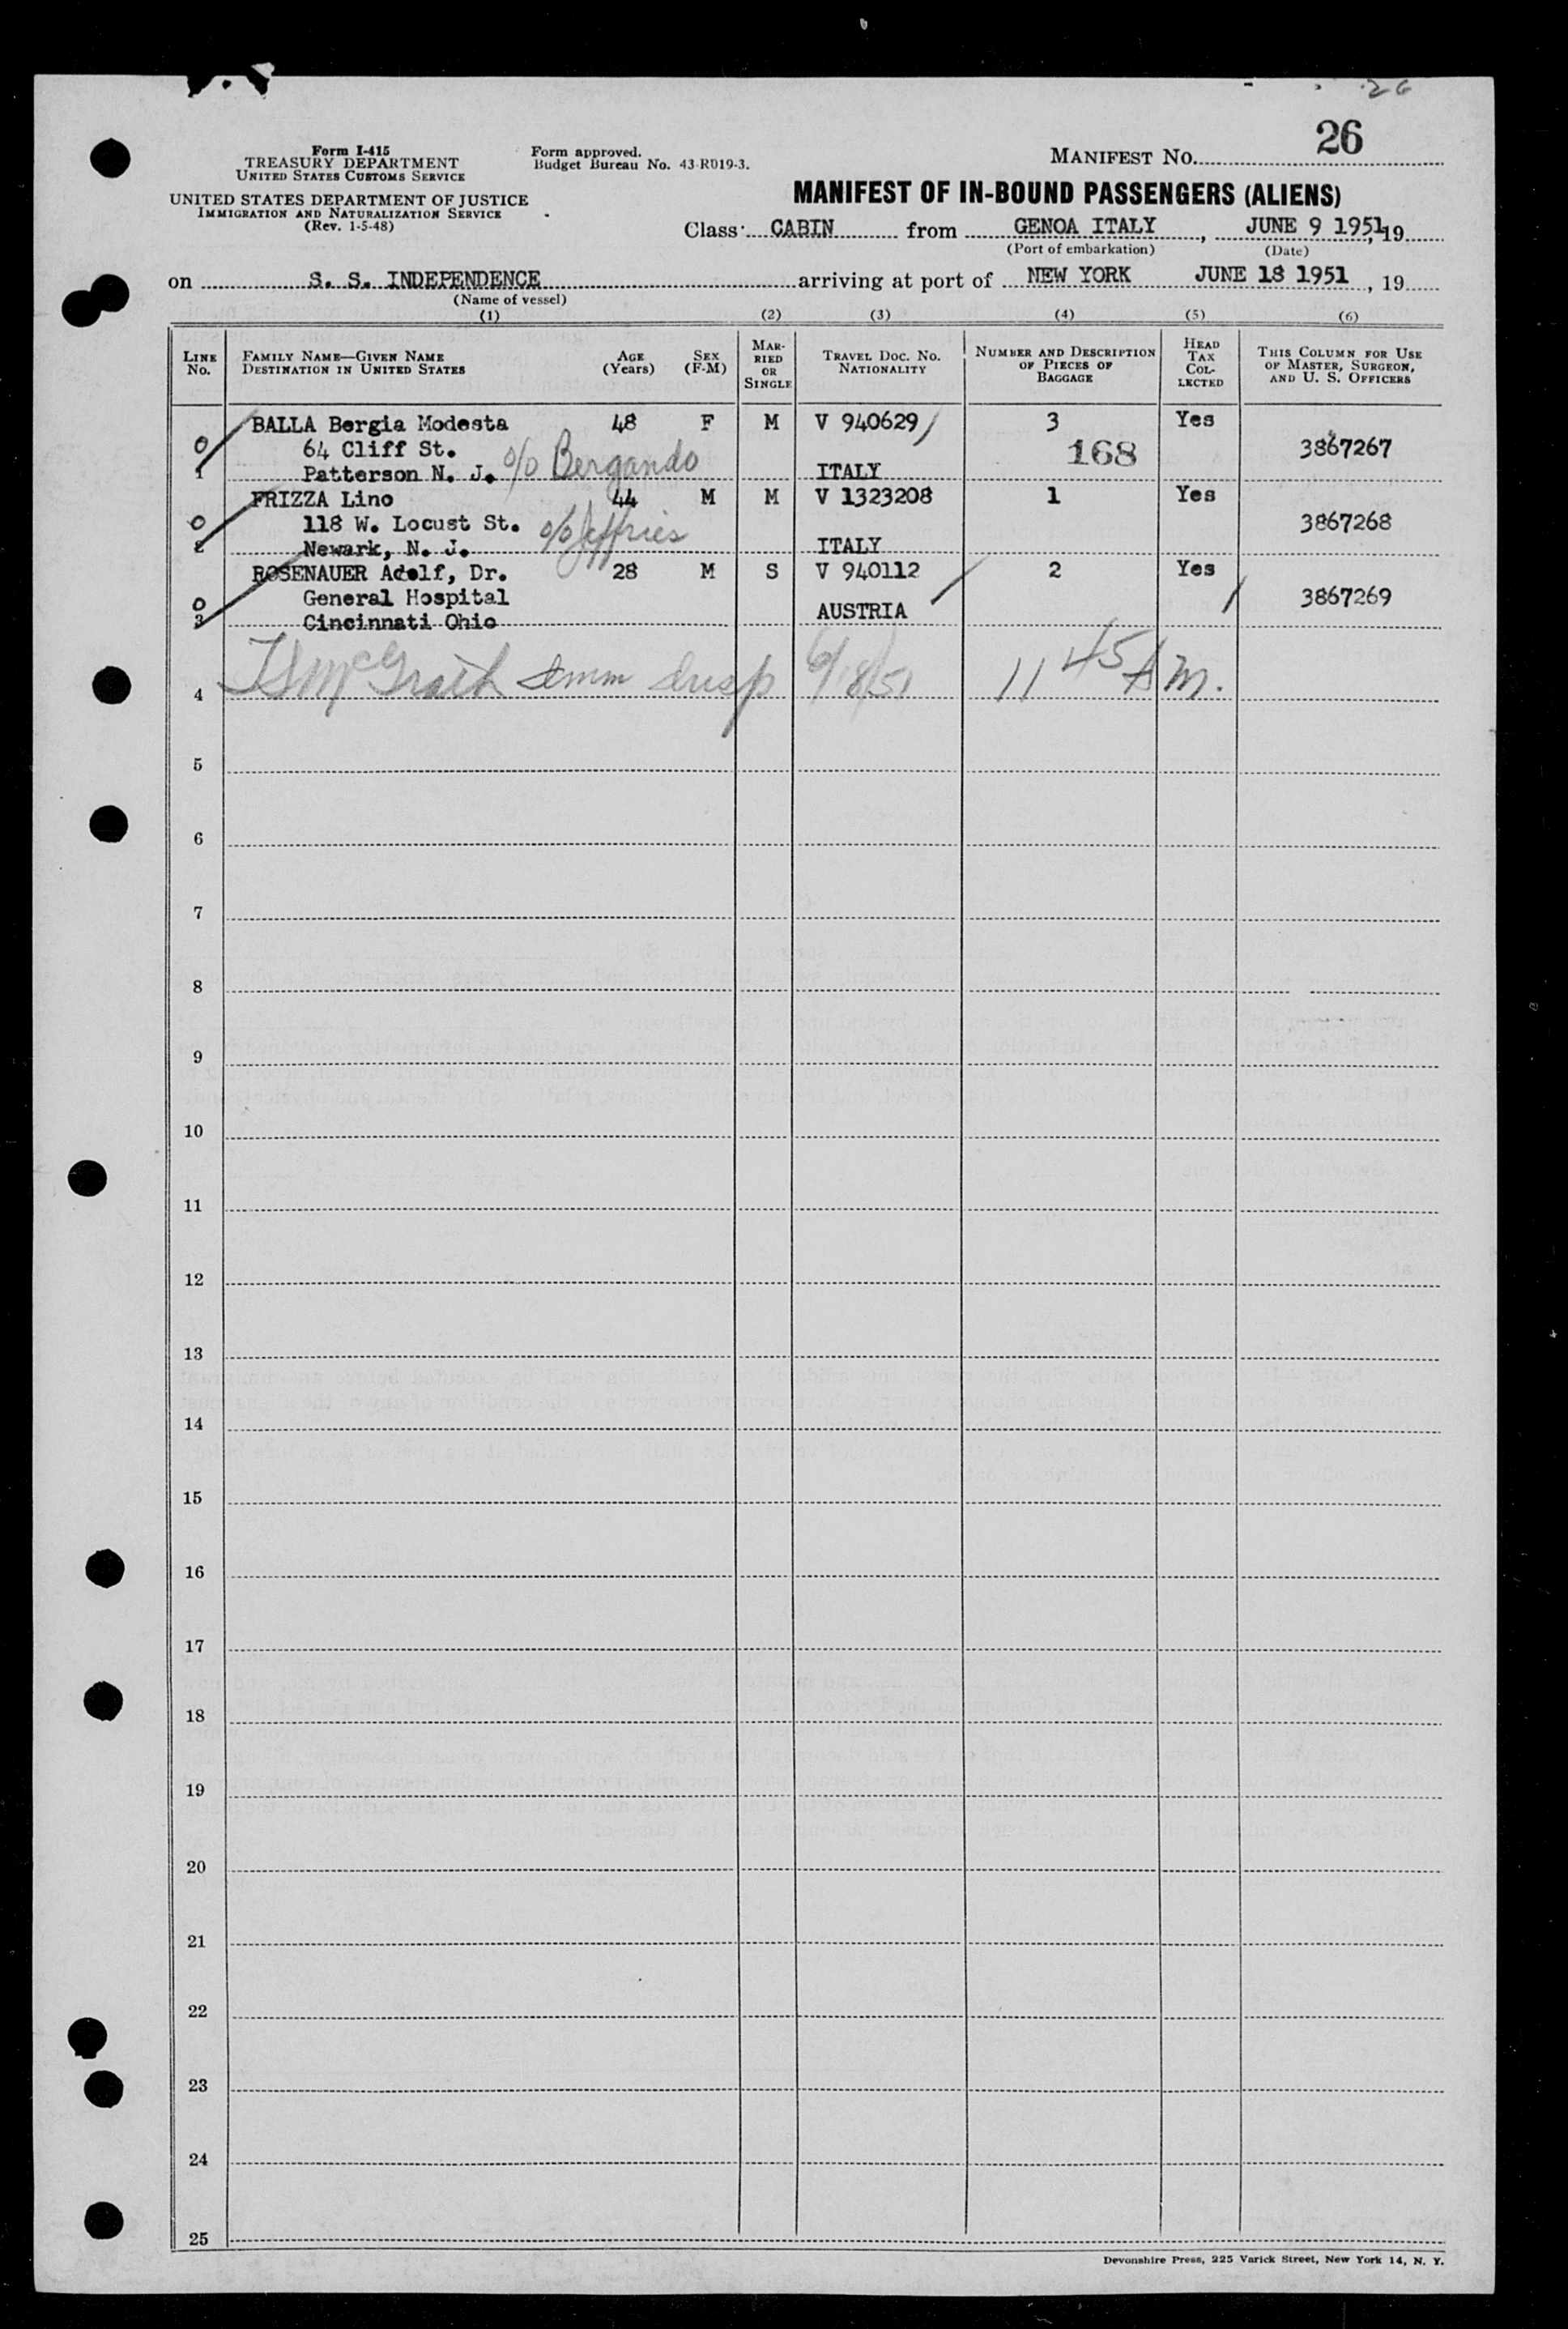 26
Form I-415
TREASURY DEPARTMENT
UNITED STATES CUSTOMS SERVICE
UNITED STATES DEPARTMENT OF JUSTICE
IMMIGRATION AND NATURALIZATION SERVICE
(Rev. 1-5-48)
Form approved.
Budget Bureau No. 43-R019-3.
MANIFEST NO. 26
MANIFEST OF IN-BOUND PASSENGERS (ALIENS)
Class CABIN from GENOA ITALY, JUNE 9 1951, 19
(Port of embarkation) (Date)
on S. S. INDEPENDENCE arriving at port of NEW YORK JUNE 18 1951, 19
(Name of vessel)
(1) (2) (3) (4) (5) (6)
LINE No. FAMILY NAME—GIVEN NAME DESTINATION IN UNITED STATES AGE (Years) SEX (F-M) MARRIED OR SINGLE TRAVEL DOC. NO. NATIONALITY NUMBER AND DESCRIPTION OF PIECES OF BAGGAGE HEAD TAX COLLECTED THIS COLUMN FOR USE OF MASTER, SURGEON, AND U. S. OFFICERS
BALLA Bergia Modesta 48 F M V 940629 3 Yes
0 64 Cliff St. c/o Bergando 168 3867267
1 Patterson N. J. ITALY
FRIZZA Lino 44 M M V 1323208 1 Yes
0 118 W. Locust St. c/o Jeffries 3867268
2 Newark, N. J. ITALY
ROSENAUER Adolf, Dr. 28 M S V 940112 2 Yes
0 General Hospital 3867269
3 Cincinnati Ohio AUSTRIA
4 McGrath Imm Insp 6/18/51 11 45 AM.
5
6
7
8
9
10
11
12
13
14
15
16
17
18
19
20
21
22
23
24
25
Devonshire Press, 225 Varick Street, New York 14, N. Y.